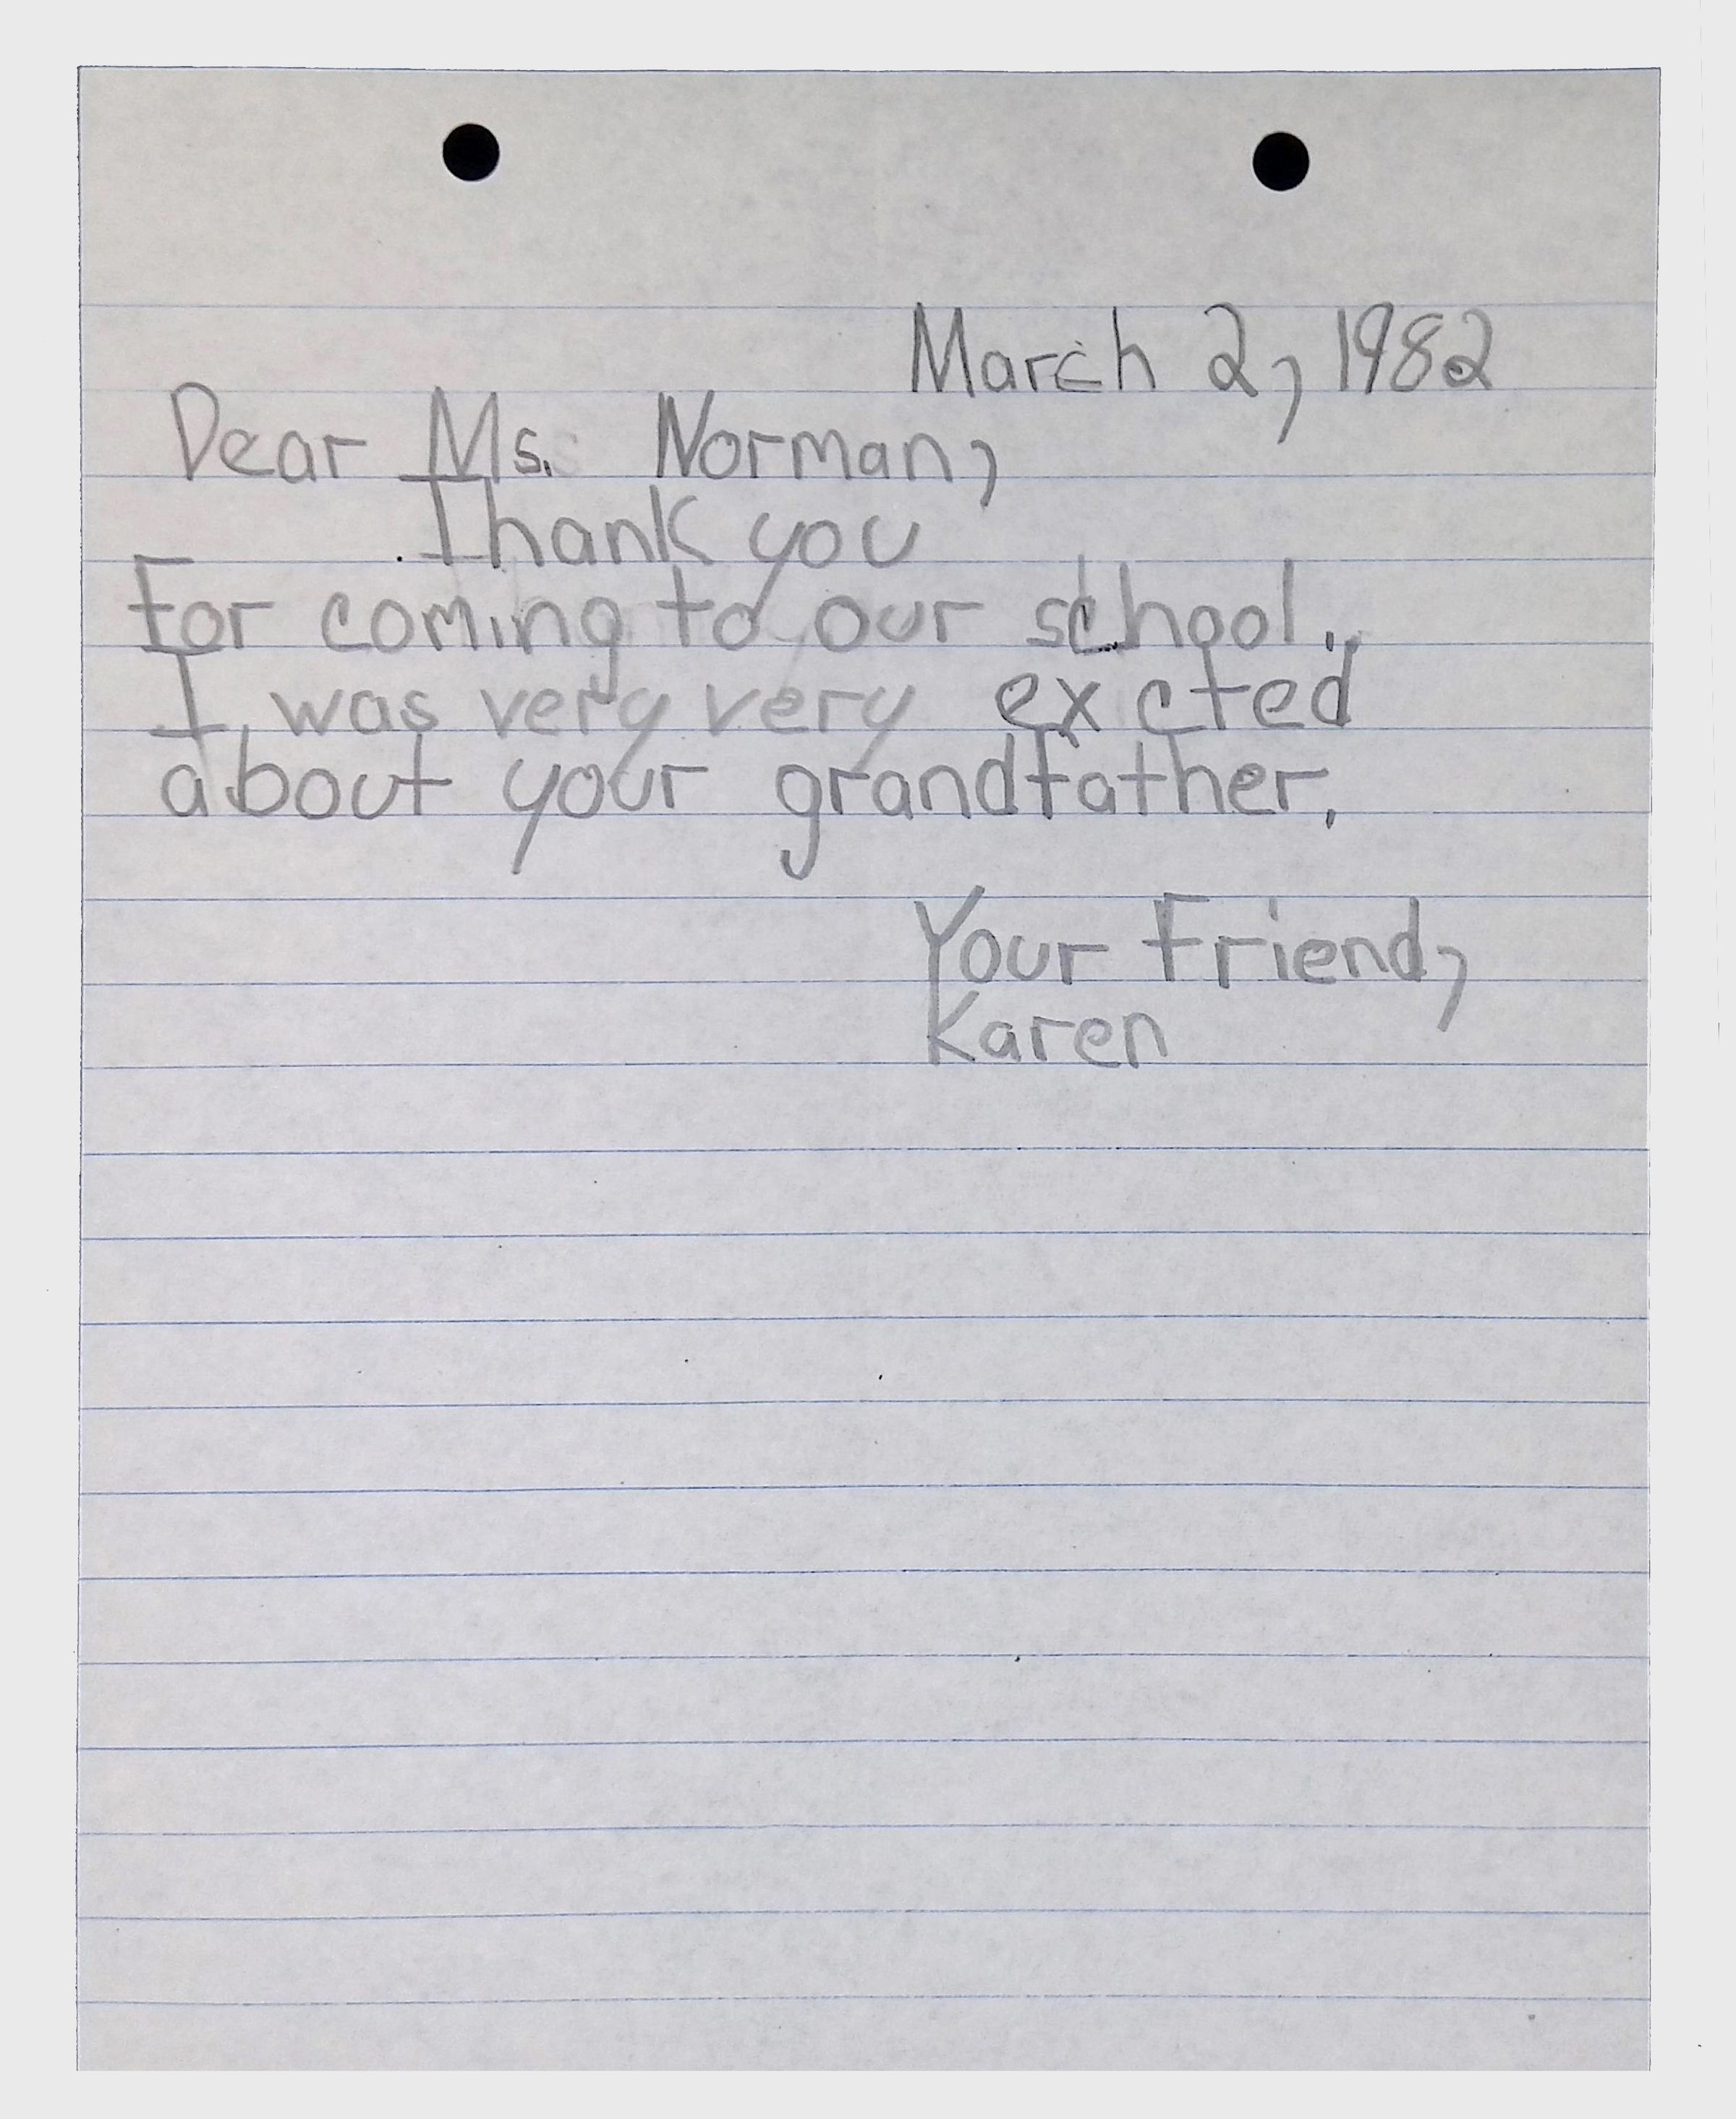 March 2, 1982
Dear Ms. Norman,
Thank you
For coming to our school.
I was very very excted
about your grandfather.
Your Friend,
Karen